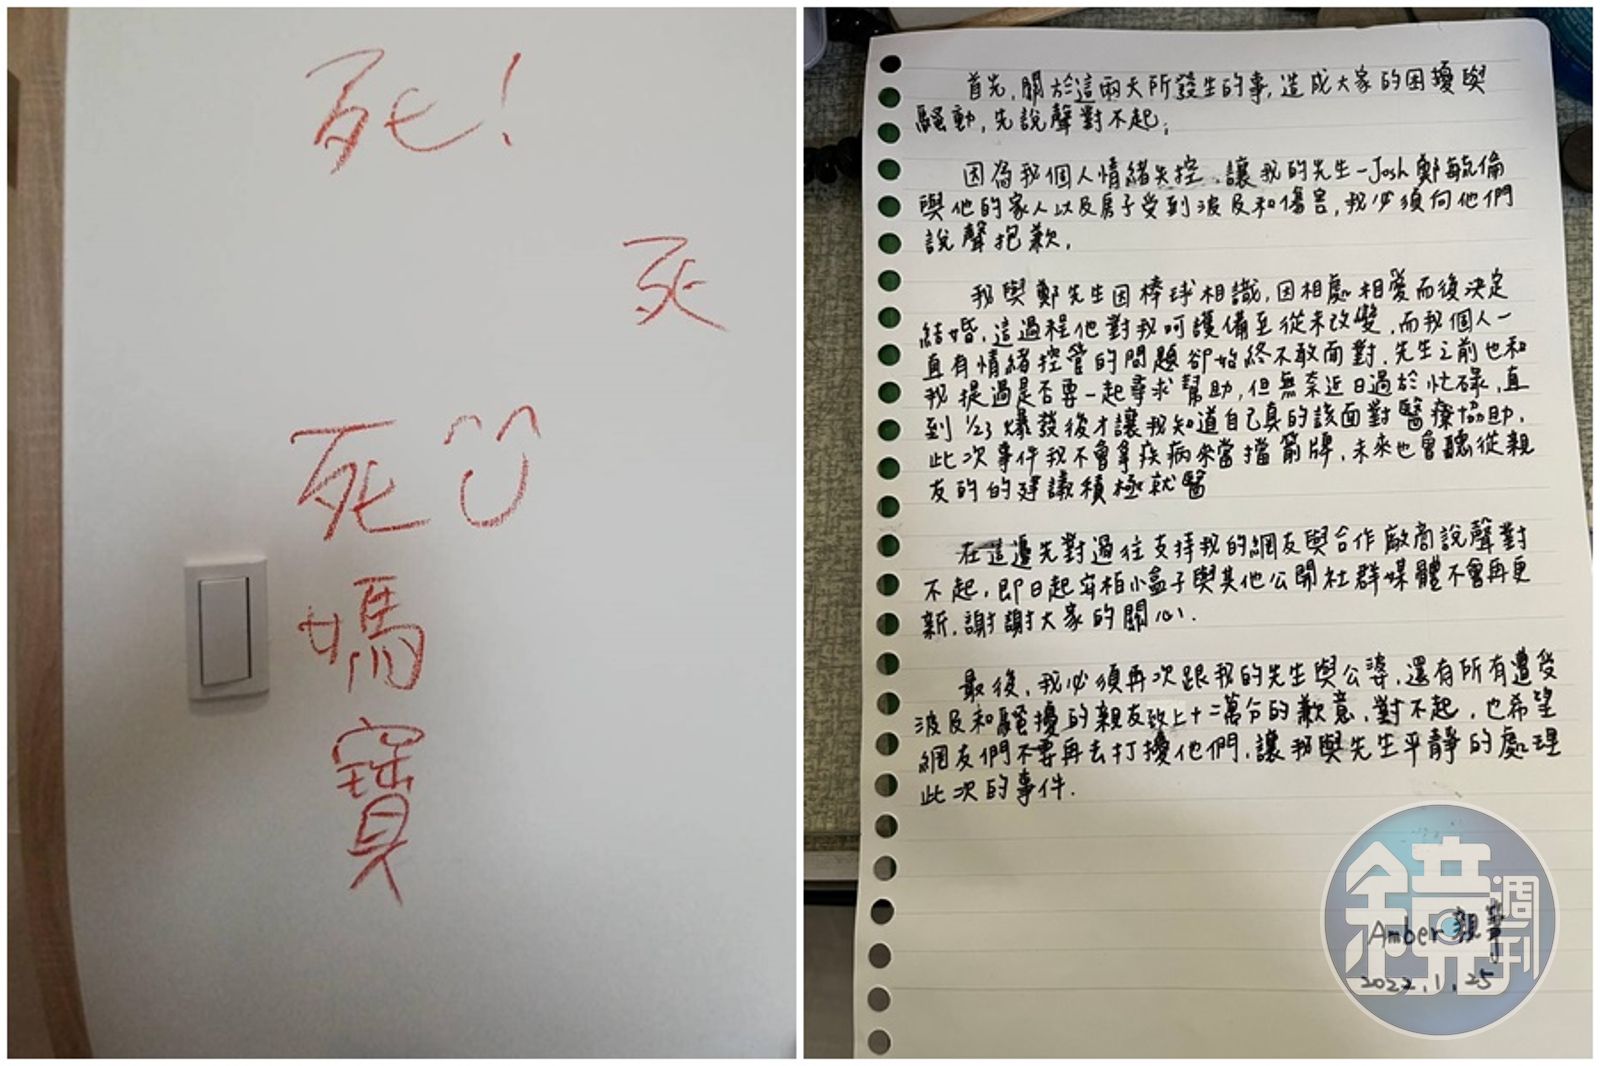 死!
死
死
媽
寶
首先,關於這兩天所發生的事,造成大家的困擾與
騷動,先說聲對不起。
因為我個人情緒失控,讓我的先生-Josh鄭毓倫
與他的家人以及房子受到波及和傷害,我必須向他們
說聲抱歉。
我與鄭先生因棒球相識,因相處相愛而後決定
結婚,這過程他對我呵護備至從未改變,而我個人一
直有情緒控管的問題卻始終不敢面對,先生之前也和
我提過是否要一起尋求幫助,但無奈近日過於忙碌,直
到1/23爆發後才讓我知道自己真的該面對醫療協助,
此次事件我不會拿疾病來當擋箭牌,未來也會聽從親
友的的建議積極就醫
在這邊先對過往支持我的網友與合作廠商說聲對
不起,即日起安柏小盒子與其他公開社群媒體不會再更
新,謝謝大家的關心.
最後,我必須再次跟我的先生與公婆,還有所有遭受
波及和騷擾的親友致上十二萬分的歉意,對不起,也希望
網友們不要再去打擾他們,讓我與先生平靜的處理
此次的事件.
Amber 親筆
2022.1.25
鏡週刊